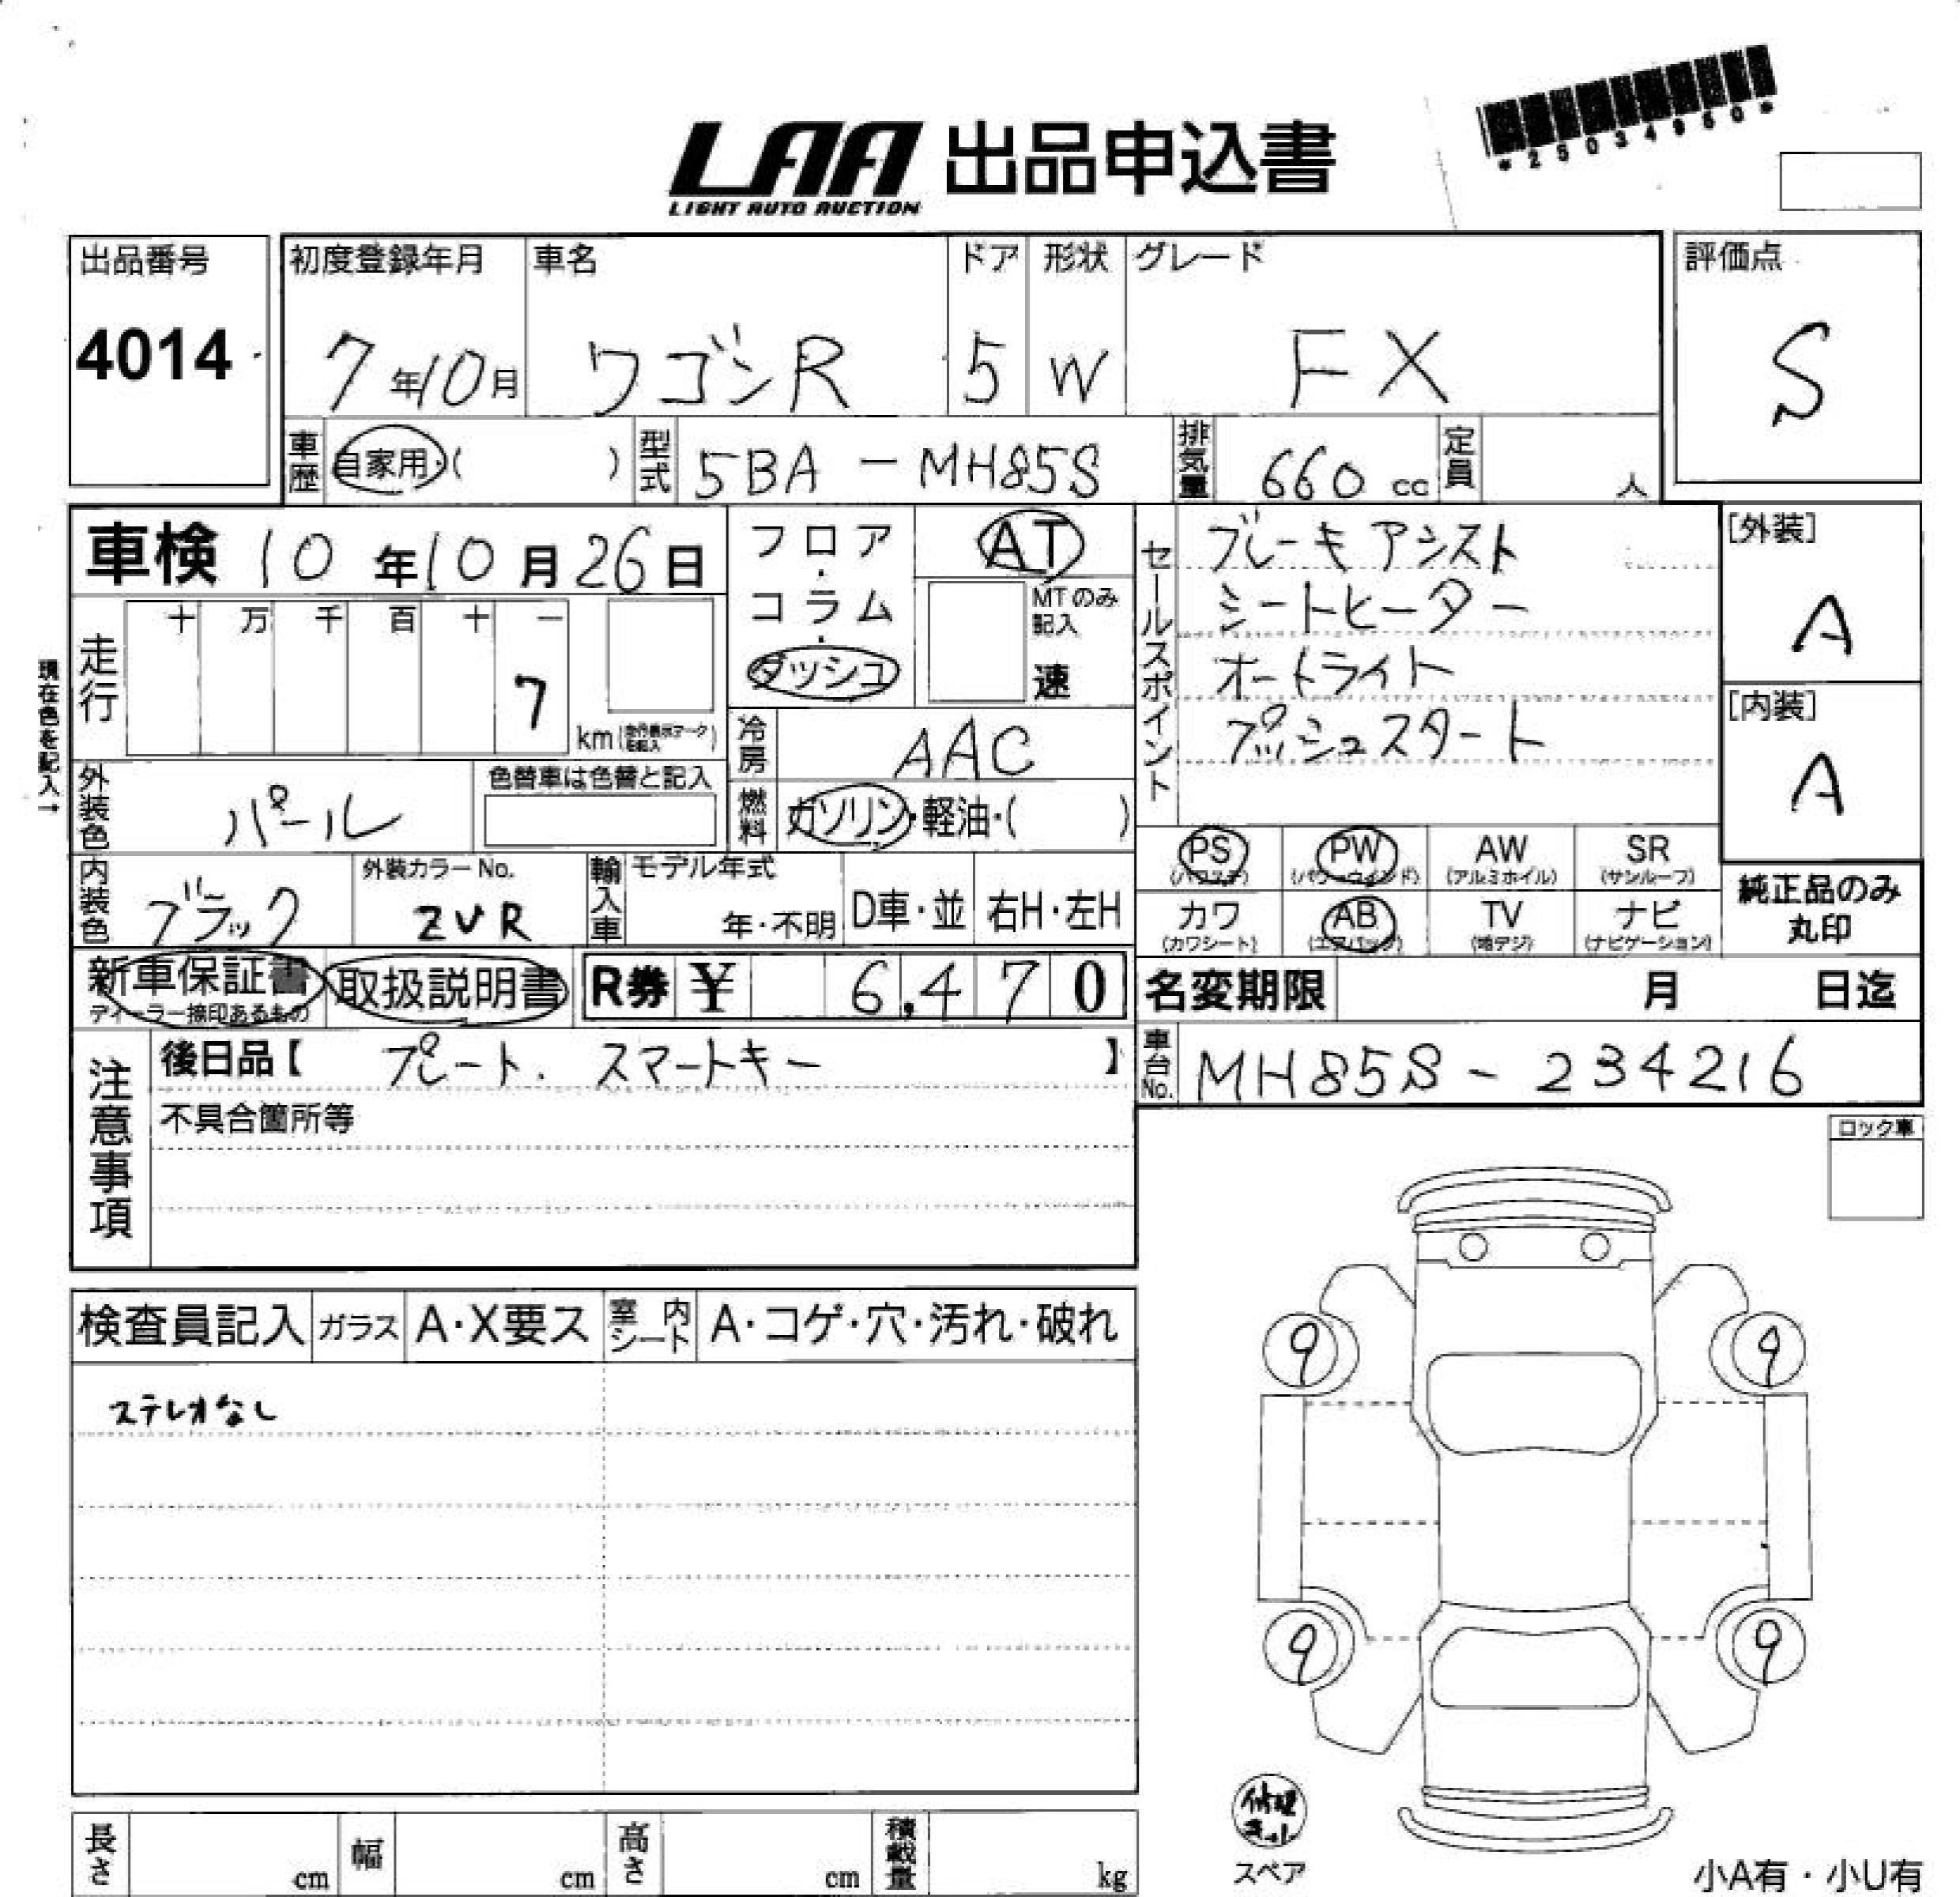 *25034950*
LAA 出品申込書
LIGHT AUTO AUCTION
出品番号
4014
初度登録年月
7年10月
車名
ワゴンR
ドア
5
形状
W
グレード
FX
評価点
S
車歴
自家用・( )
型式
5BA-MH85S
排気量
660 cc
定員
人
車検 10年10月26日
フロア・コラム・ダッシュ
AT
MTのみ記入
速
セールスポイント
ブレーキアシスト
シートヒーター
オートライト
プッシュスタート
[外装]
A
[内装]
A
現在色を記入→
走行
十 万 千 百 十 一
7
km
冷房
AAC
外装色
パール
色替車は色替と記入
燃料
ガソリン・軽油・( )
PS
(パワステ)
PW
(パワーウィンド)
AW
(アルミホイル)
SR
(サンルーフ)
カワ
(カワシート)
AB
(エアバック)
TV
(地デジ)
ナビ
(ナビゲーション)
純正品のみ
丸印
内装色
ブラック
外装カラーNo.
ZVR
輸入車
モデル年式
年・不明
D車・並
右H・左H
新車保証書
ディーラー捺印あるもの
取扱説明書
R券 ¥ 6,470
名変期限 月 日迄
注意事項
後日品【 プレート. スマートキー 】
不具合箇所等
車台No.
MH85S-234216
ロック車
検査員記入
ガラス
A・X要ス
室内シート
A・コゲ・穴・汚れ・破れ
ステレオなし
9
9
9
9
修理キット
スペア
長さ cm
幅 cm
高さ cm
積載量 kg
小A有・小U有